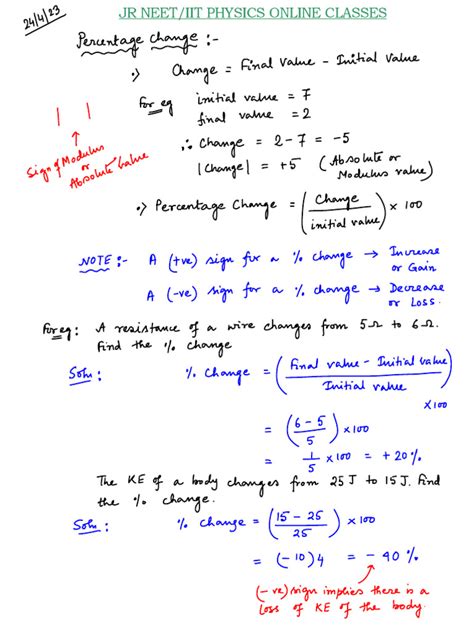 JR NEET/IIT PHYSICS ONLINE CLASSES
24/4/23
Percentage change :-
•) Change = Final value - Initial value
For eg initial value = 7
final value = 2
∴ Change = 2-7 = -5
|Change| = +5 (Absolute or
Modulus value)
| |
Sign of Modulus
or
Absolute value
•) Percentage Change = (Change / initial value) × 100
NOTE :- A (+ve) sign for a % change → Increase
or Gain
A (-ve) sign for a % change → Decrease
or Loss.
For eg: A resistance of a wire changes from 5Ω to 6Ω.
Find the % change
Soln : % change = (Final value - Initial value / Initial value)
×100
= (6-5 / 5) ×100
= 1/5 ×100 = +20%
The KE of a body changes from 25J to 15J. Find
the % change.
Soln : % change = (15-25 / 25) ×100
= (-10)4 = -40%
(-ve) sign implies there is a
loss of KE of the body.